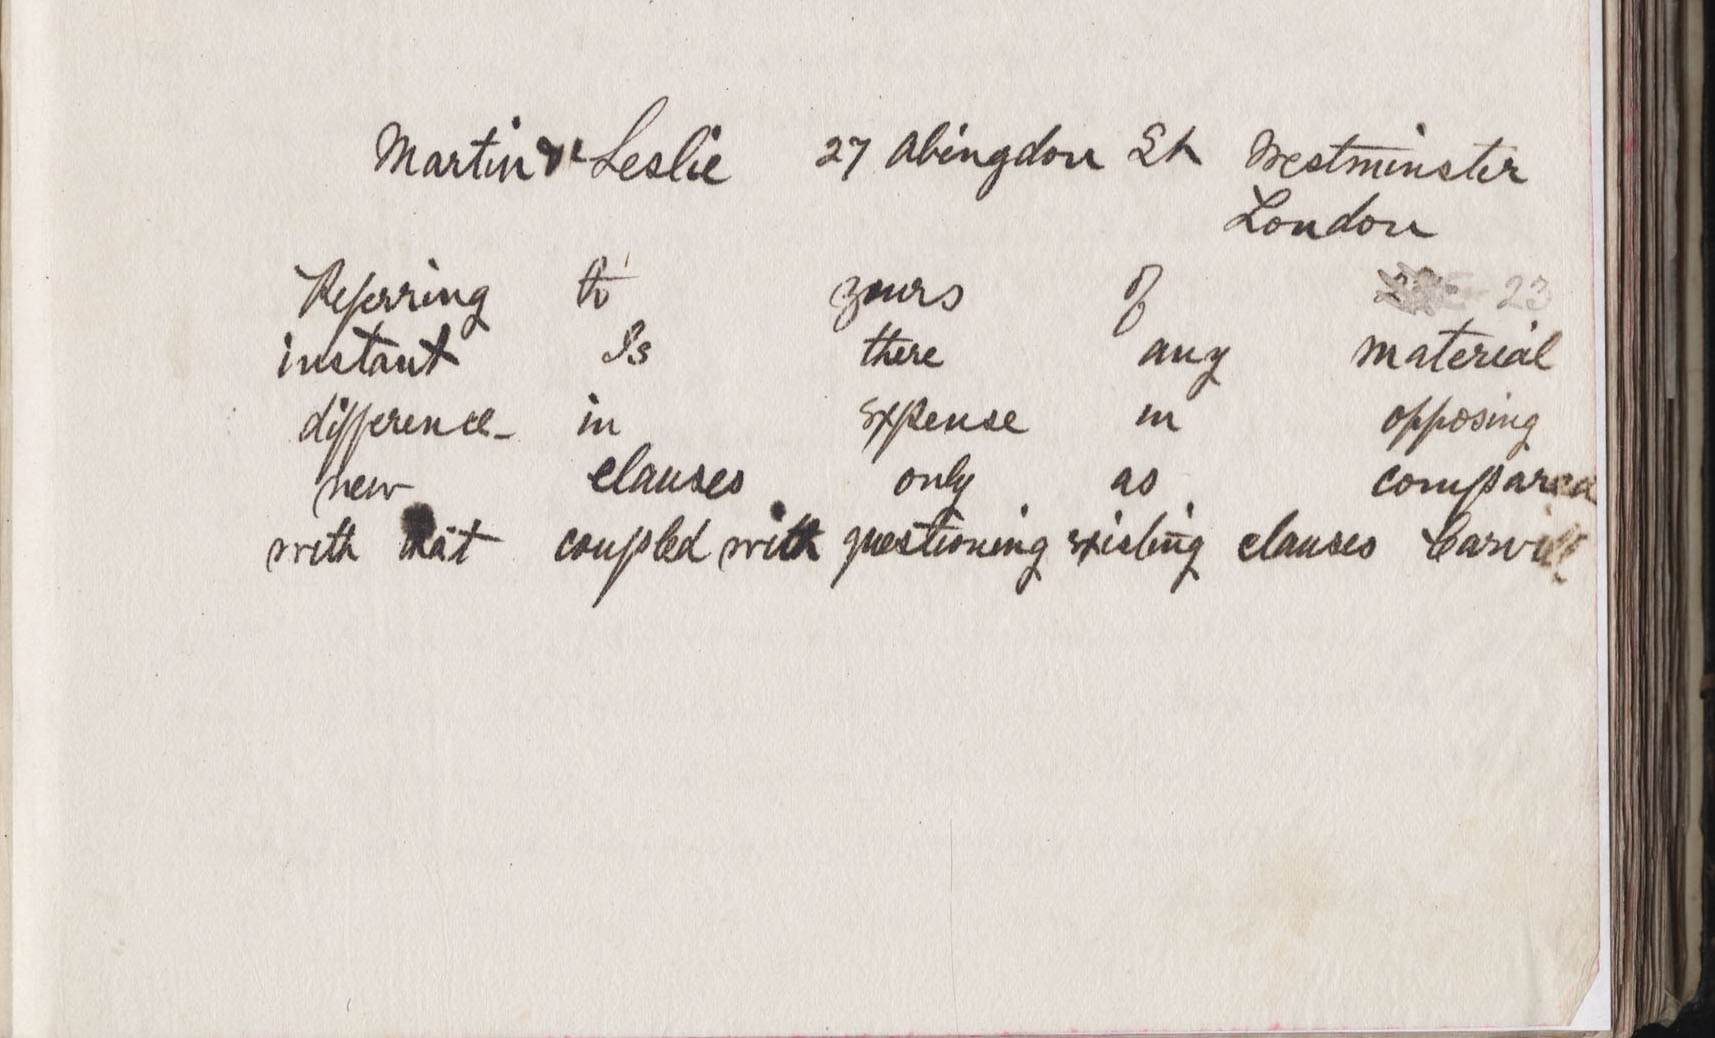 Martin & Leslie 27 Abingdon St Westminster
London
Referring to yours of 23
instant Is there any material
difference in expense in opposing
new clauses only as compared
with that coupled with questioning existing clauses Carvill